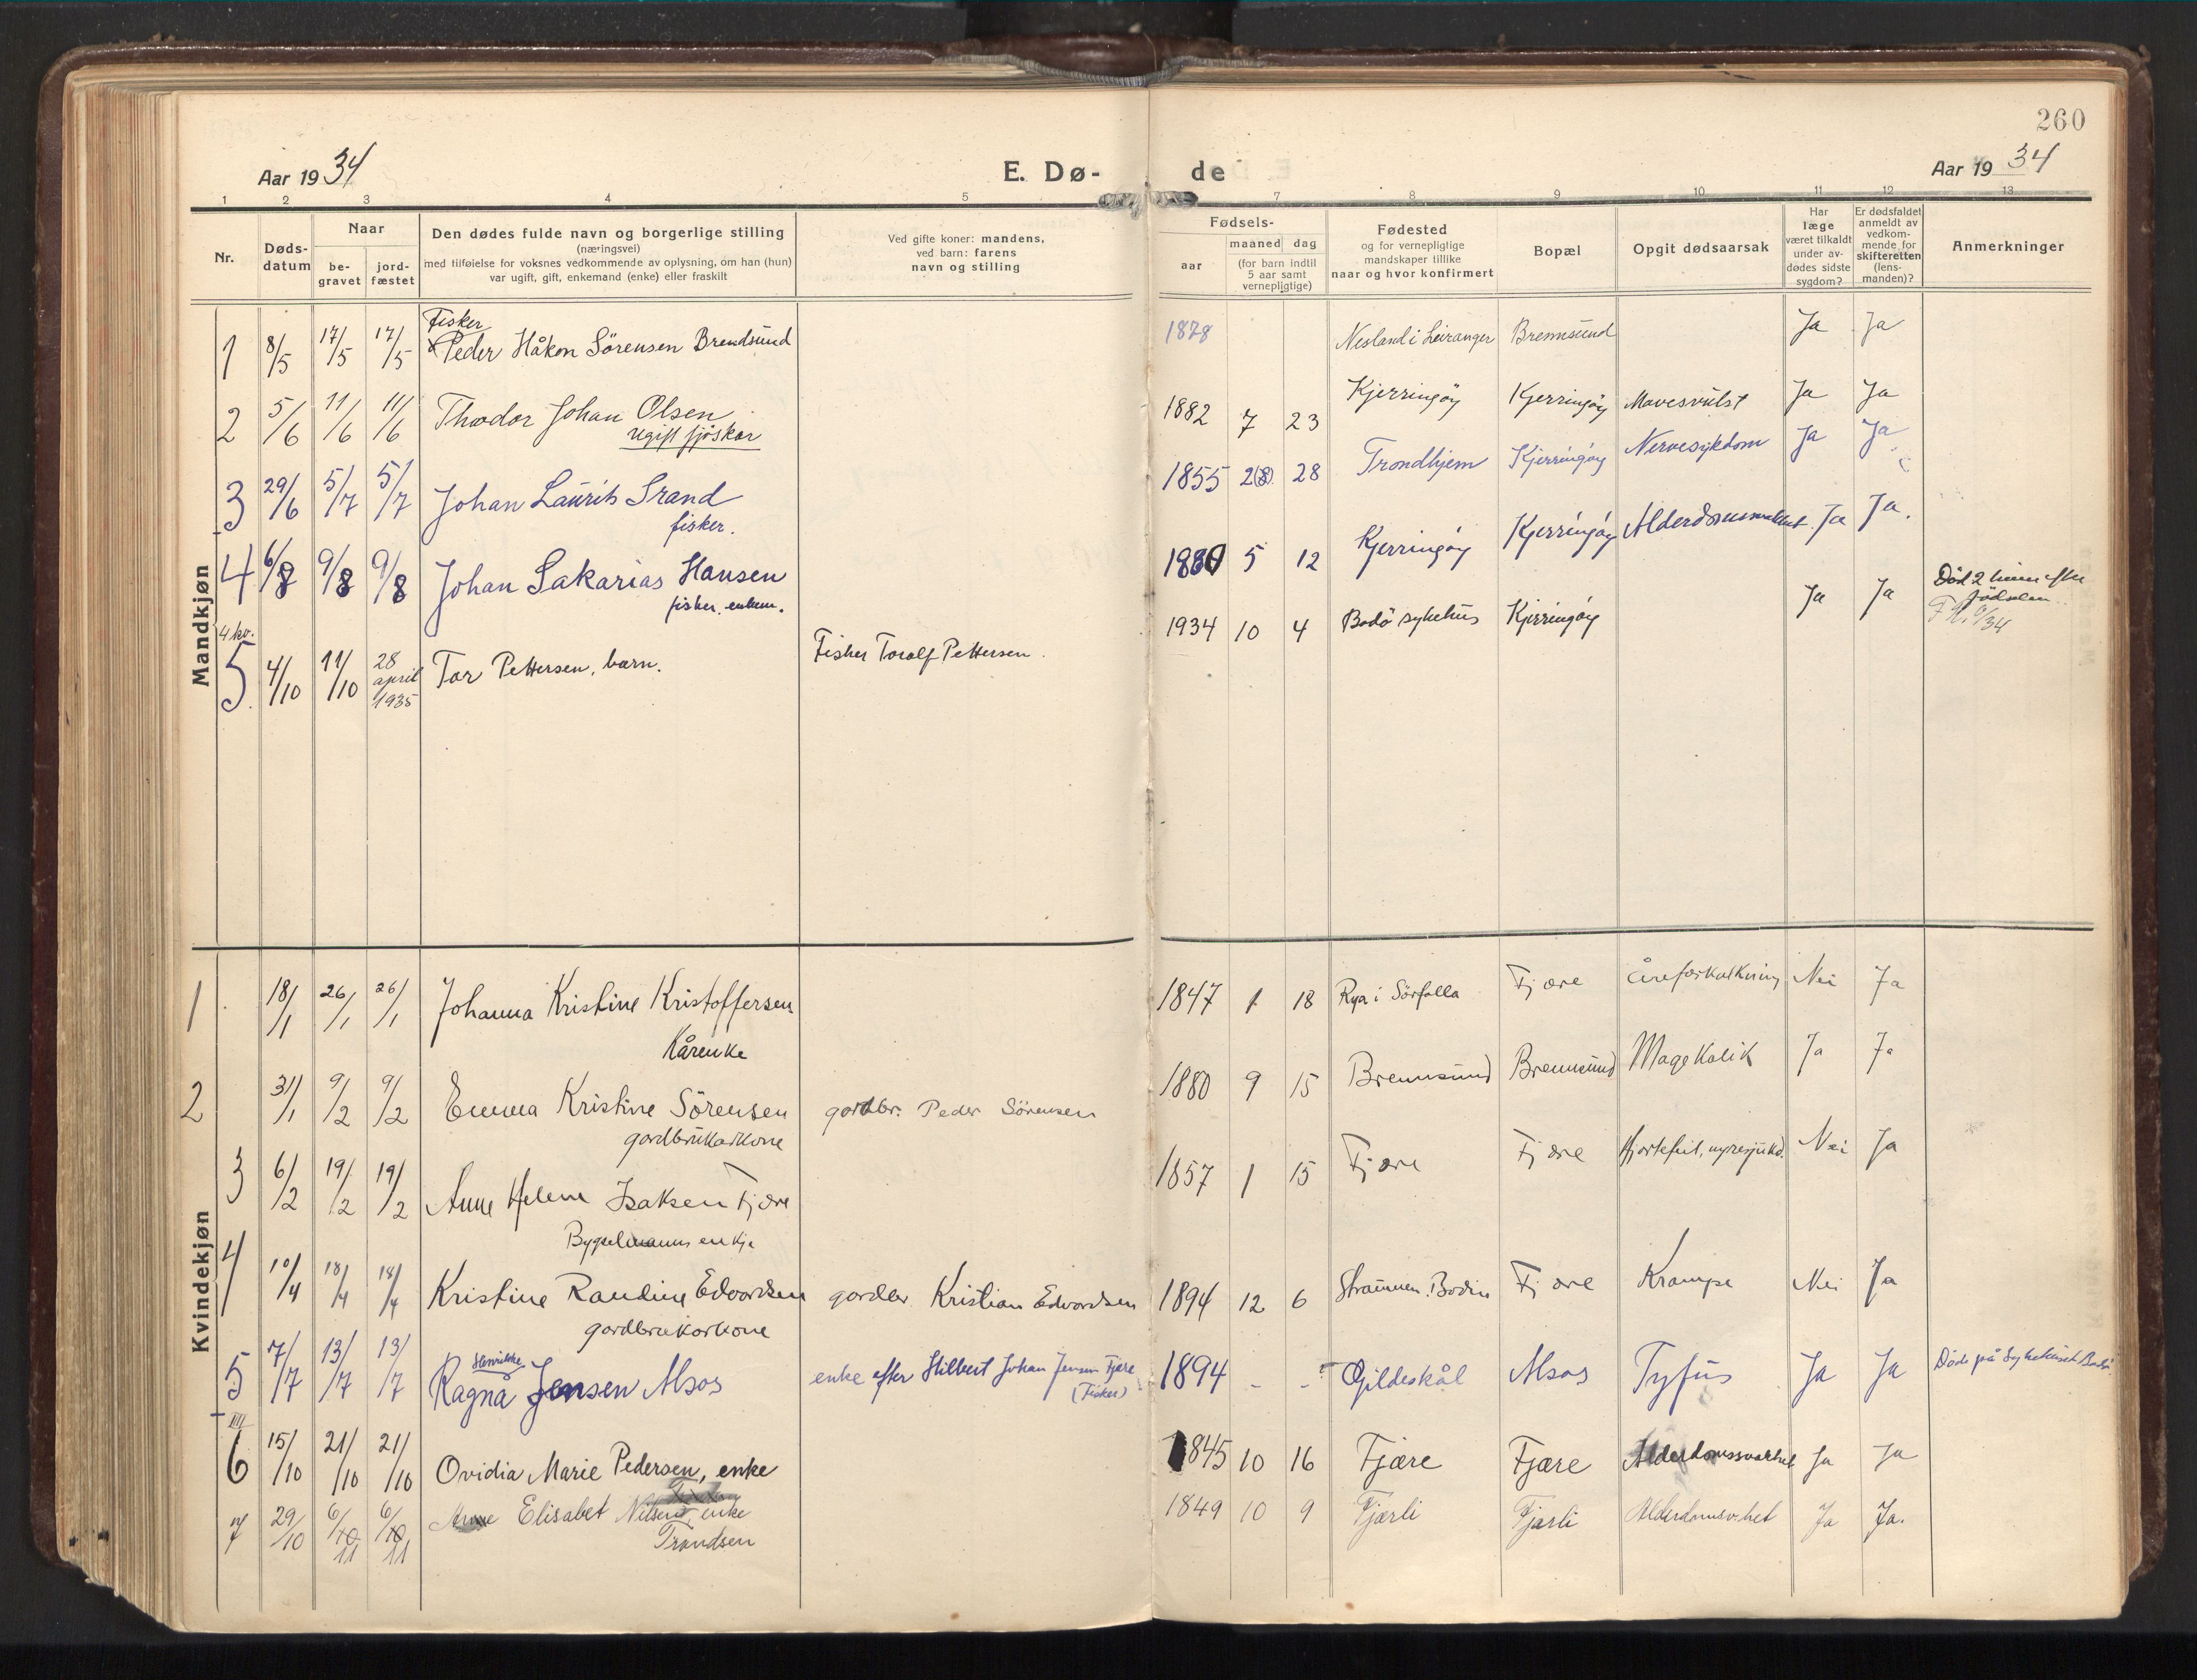 260
Aar 1934
E. Dø-
de
Aar 1934
1 2 3 4 5 7 8 9 10 11 12 13
Nr.
Døds-
datum
Naar
be-
gravet
jord-
fæstet
Den dødes fulde navn og borgerlige stilling
(næringsvei)
med tilføielse for voksnes vedkommende av oplysning, om han (hun)
var ugift, gift, enkemand (enke) eller fraskilt
Ved gifte koner: mandens,
ved barn: farens
navn og stilling
Fødsels-
aar
maaned dag
(for barn indtil
5 aar samt
vernepligtige)
Fødested
og for vernepligtige
mandskaper tillike
naar og hvor konfirmert
Bopæl
Opgit dødsaarsak
Har
læge
været tilkaldt
under av-
dødes sidste
sygdom?
Er dødsfaldet
anmeldt av
vedkom-
mende for
skifteretten
(lens-
manden)?
Anmerkninger
Mandkjøn
Fisker
1 8/5 17/5 17/5 Peder Håkon Sörensen Brendsund 1878 Nesland i Leiranger Brennsund Ja Ja
2 5/6 11/6 11/6 Thodor Johan Olsen 1882 7 23 Kjerringöy Kjerringöy Mavesvulst Ja Ja
ugift fjöskar
3 29/6 5/7 5/7 Johan Laurits Strand 1855 2(8) 28 Trondhjem Kjerringöy Nervesykdom Ja Ja
fisker.
4 6/8 9/8 9/8 Johan Sakarias Hansen 5 12 Kjerringöy Kjerringöy Ja Ja.
fisker. enkem.
4 kv.
5 4/10 11/10 28 april 1935 Tor Pettersen, barn. Fisker Toralf Pettersen. 1934 10 4 Bodö sykehus Kjerringöy Ja Ja Död 2 timer efter
födselen.
Kvindekjøn
1 18/1 26/1 26/1 Johanna Kristine Kristoffersen 1847 1 18 Rya i Sörfolla Fjære Åreforkalkning Nei Ja
Kårenke
2 31/1 9/2 9/2 Emma Kristine Sörensen gardbr. Peder Sörensen 1880 9 15 Brennsund Brennsund Magekolik Ja Ja
gardbrukarkone
3 6/2 19/2 19/2 Anne Helene Isaksen Fjære 1857 1 15 Fjære Fjære Hjartefeil, nyresjukd. Nei Ja
Bygselmanns enkje
4 10/4 18/4 18/4 Kristine Randine Edvardsen gardbr. Kristian Edvardsen 1894 12 6 Straumen. Bodin Fjære Krampe Nei Ja
gardbrukarkone
Henrikke
5 7/7 13/7 13/7 Ragna Jensen Alsos enke efter Hilbert Johan Jensen Fjære 1894 - - Gildeskål Alsos Tyfus Ja Ja Döde på Sykehuset Bodö
(Fisker)
6 15/10 21/10 21/10 Ovidia Marie Pedersen, enke 1845 10 16 Fjære Fjære Alderdomssvakhet Ja Ja
7 29/10 6/10 11 6/10 11 Anne Elisabet Nilsen, enke 1849 10 9 Fjærli Fjærli Alderdomsv.het Ja Ja.
Trondsen